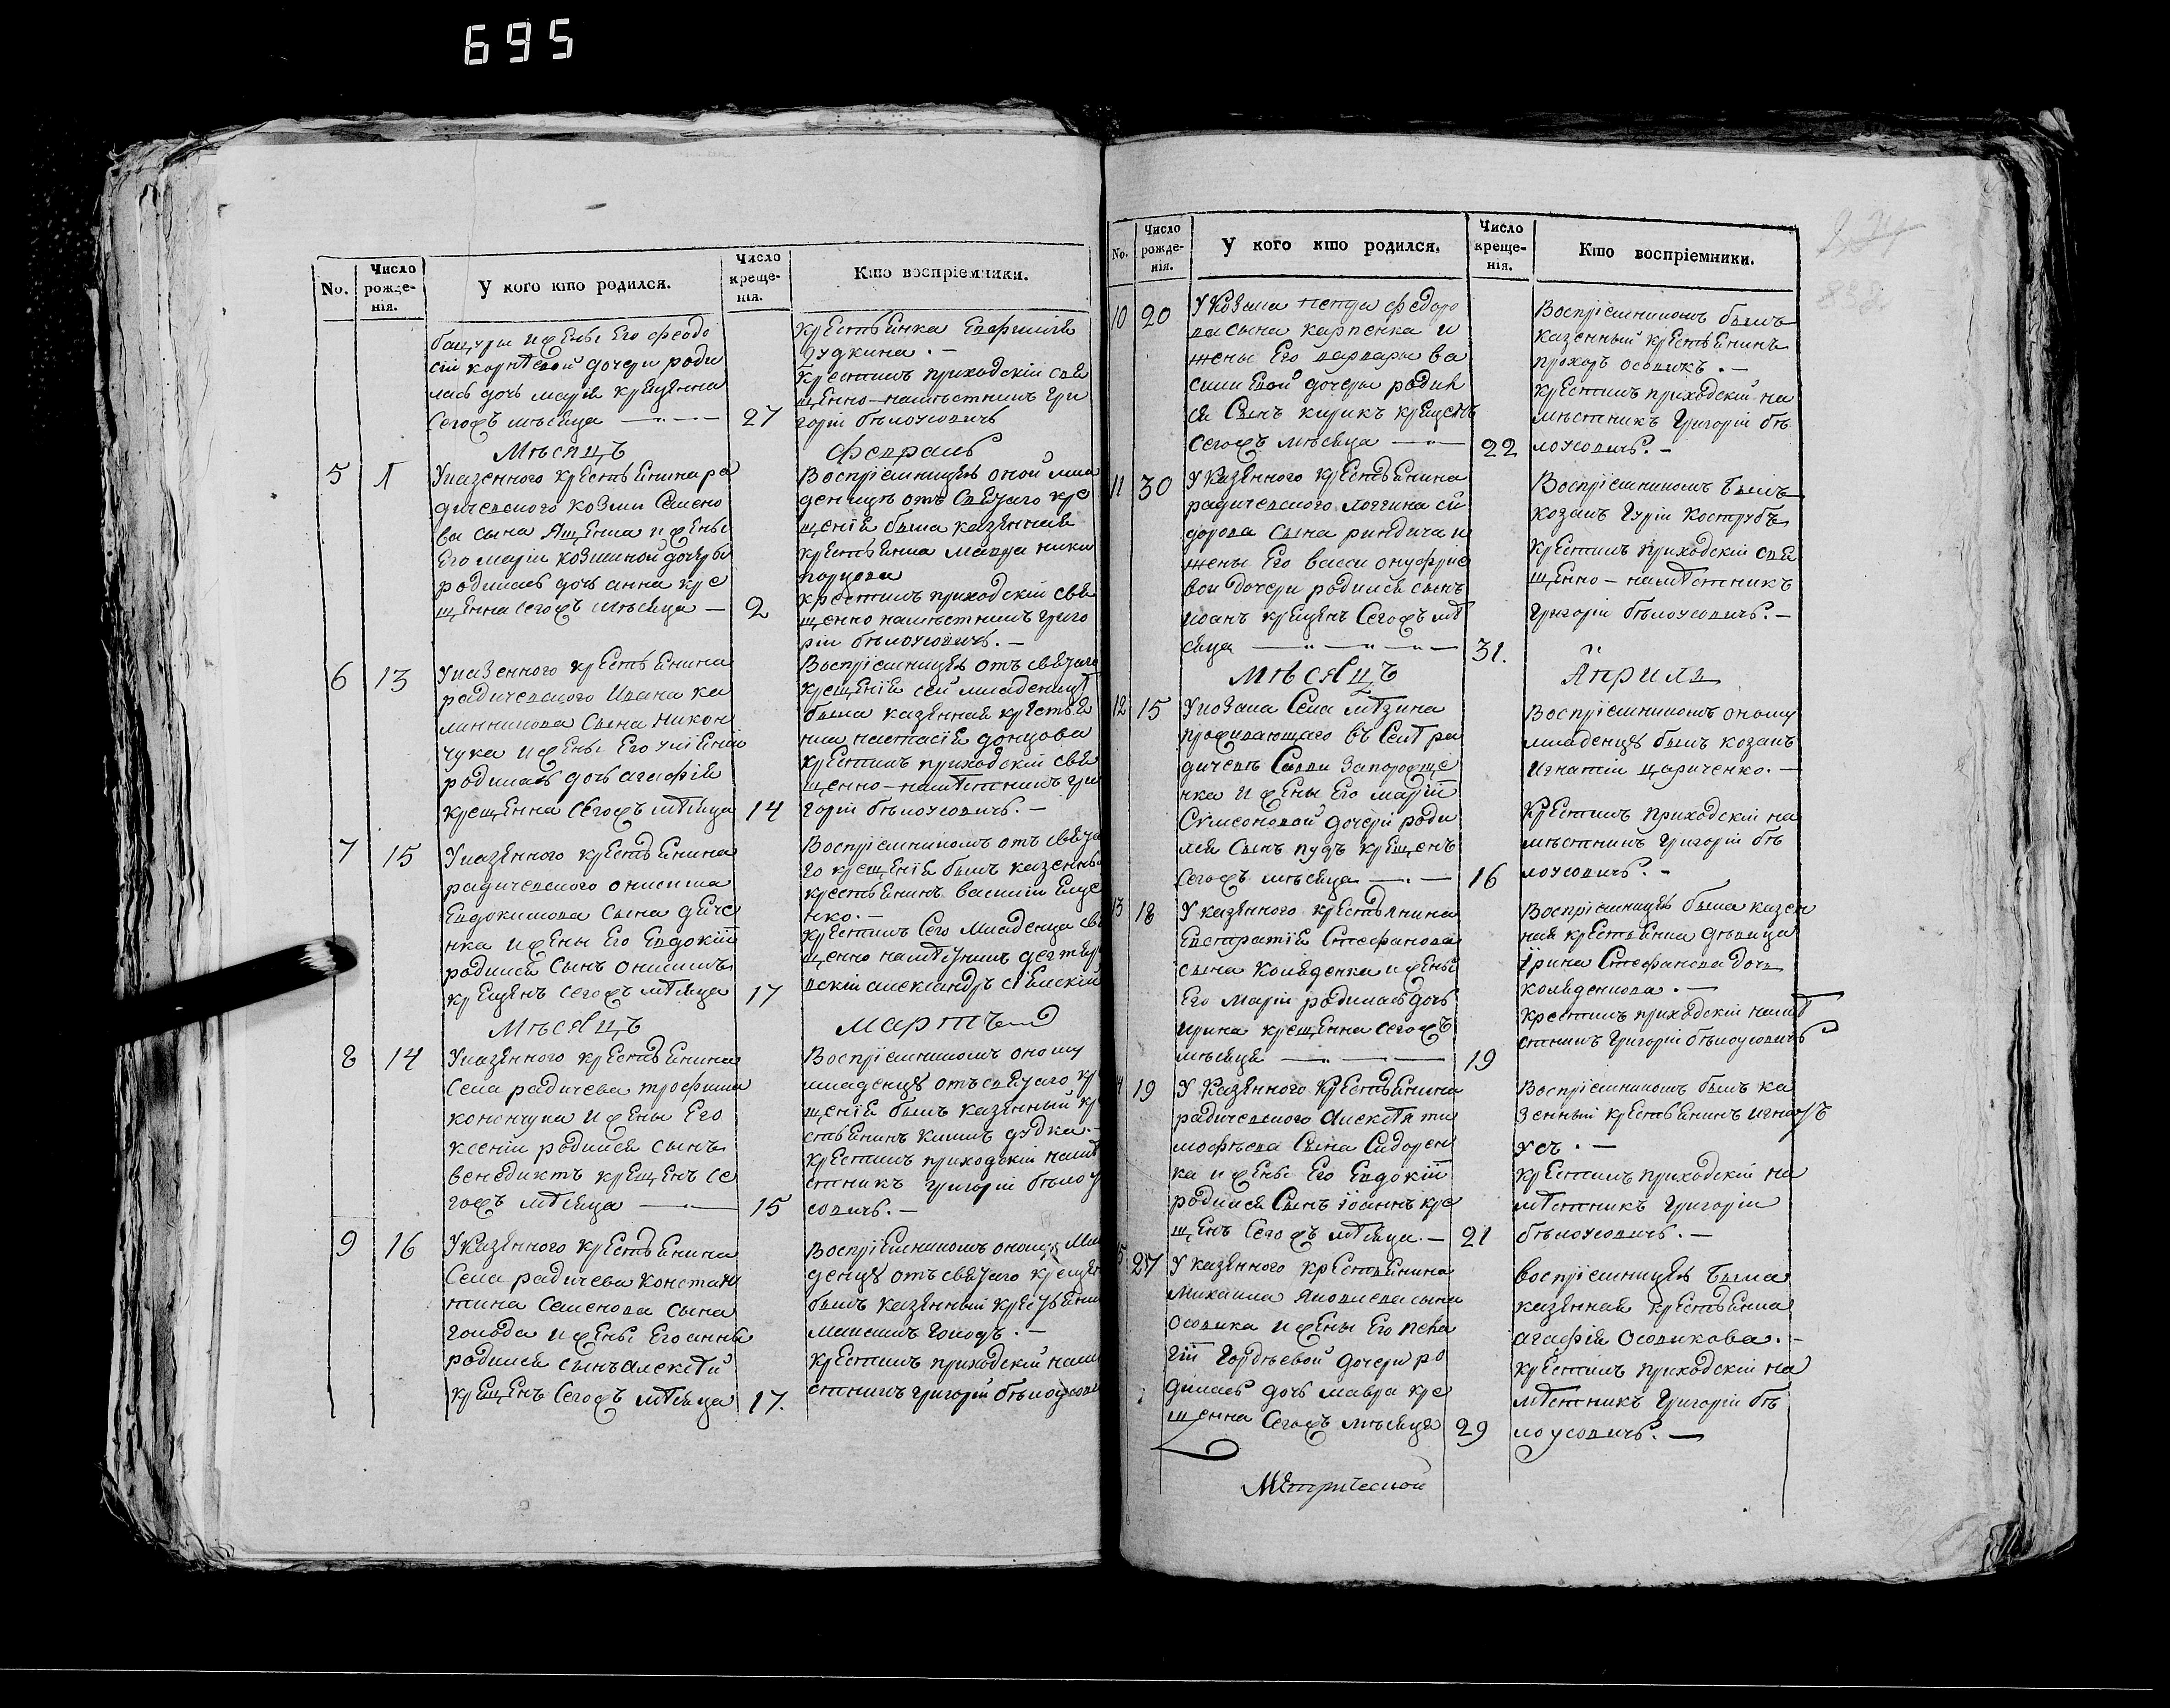 695
No.
Число рожденія.
У кого кто родился.
Число крещенія.
Кто воспріемники.
и жены его феодо
сіи дочери роди
лась дочь марія крещенна
сегожъ мѣсяца 27
крестьянка
крестилъ приходскій свя
щенно-намѣстникъ гри
горій бѣлоусовичъ
Мѣсяцъ февраль
5
Указенного крестьянина ра
дичевского козми Семено
ва сына и жены
его маріи козминой дочери
родилась дочь анна кре
щенна сегожъ мѣсяца — 2
Воспріемницею оной мла
деницы отъ святаго кре
щенія была казенная
крестьянка мавра
крестилъ приходскій свя
щенно намѣстникъ григо
рій бѣлоусовичъ. —
6 13
Указенного крестьянина
радичевского Ивана ка
линникова сына никон
чука и жены его
родилась дочь агафія
крещенна сегожъ мѣсяца 14
Воспріемницею отъ святаго
крещенія сей младеницы
была казенная крестья
нка настасія донцова
крестилъ приходскій свя
щенно-намѣстникъ гри
горій бѣлоусовичъ. —
7 15
Указенного крестьянина
радичевского онисима
Евдокимова сына дейне
нка и жены его Евдокіи
родился сынъ онисимъ
крещенъ сегожъ мѣсяца 17
Воспріемникомъ отъ свята
го крещенія былъ казенны
крестьянинъ василій еще
нко. —
крестилъ сего младенца свя
щенно александръ
Мѣсяцъ мартъ
8 14
Указенного крестьянина
села радичева трофима
конончука и жены его
ксеніи родился сынъ
венедиктъ крещенъ се
гожъ мѣсяца 15
Воспріемникомъ оному
младенцу отъ святаго кр
щенія былъ казенный кр
стьянинъ климъ дудка. —
крестилъ приходскій намѣ
стникъ григорій бѣлоу
совичъ. —
9 16
Указенного крестьянина
села радичева констан
тина семенова сына
голода и жены его анны
родился сынъ алексѣй
крещенъ сегожъ мѣсяца 17.
Воспріемникомъ оному мла
денцу отъ святаго крещен
былъ казенный крестьянин
максимъ голодъ. —
крестилъ приходскій намѣ
стникъ григорій бѣлоусови
No.
Число рожденія.
У кого кто родился.
Число крещенія.
Кто воспріемники.
10 20
У козака петра федоро
ва сына карпенка и
жены его варвары ва
силіевой дочери родил
ся сынъ кирикъ крещенъ
сегожъ мѣсяца 22
Воспріемникомъ былъ
казенный крестьянинъ
прохоръ осовикъ. —
крестилъ приходскій на
мѣстникъ григорій бѣ
лоусовичъ. —
11 30
У казенного крестьянина
радичевского логгина си
дорова сына риндича и
жены его васси онуфріе
вои дочери родился сынъ
иоанъ крещенъ сегожъ мѣ
сяца 31.
Воспріемникомъ былъ
козакъ гурій кострубъ
крестилъ приходскій свя
щенно-намѣстникъ
григорій бѣлоусовичъ. —
Мѣсяцъ Априль
12 15
Укозака села мѣзина
проживающаго въ селѣ ра
дичевѣ саввы запороже
нка и жены его маріи
сѵмеоновой дочери роди
лся сынъ пудъ крещенъ
сегожъ мѣсяца 16
Воспріемникомъ оному
младенцу былъ козакъ
игнатій цариченко. —
Крестилъ приходскій на
мѣстникъ григорій бѣ
лоусовичъ. —
13 18
У казенного крестьянина
евстратія стефанова
сына коляденка и жены
его маріи родилась дочь
ирина крещенна сегожъ
мѣсяца 19
Воспріемницею была казен
ная крестьянка дѣвица
ірина стефанова дочь
коляденкова. —
крестилъ приходскій намѣ
стникъ григорій бѣлоусовичъ
14 19
У казенного крестьянина
радичевского алексѣя ти
мофѣева сына сидорен
ка и жены его Евдокіи
родился сынъ іоаннъ кре
щенъ сегожъ мѣсяца. — 21
Воспріемникомъ былъ ка
зенный крестьянинъ игнатъ
усъ. —
крестилъ приходскій на
мѣстникъ григорій
бѣлоусовичъ. —
15 27
У казенного крестьянина
михаила яковлева сына
осовика и жены его пела
гіи гордѣевой дочери ро
дилась дочь мавра кре
щенна сегожъ мѣсяца 29
воспріемницею была
казенная крестьянка
агафія осовикова. —
крестилъ приходскій на
мѣстникъ григорій бѣ
лоусовичъ. —
Метрической